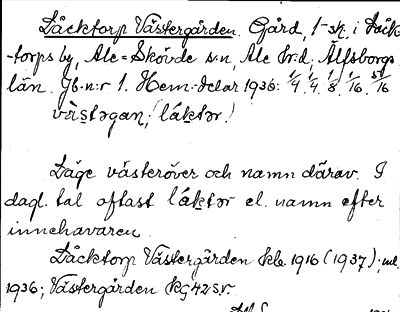 Läcktorp Västergården. Gård, 1-sk. i Läck-
-torps by, Ale-Skövde s:n, Ale hrd, Älfsborgs
län. Gb.n:r 1. Hem.delar 1936: 1/4. 1/4. 1/8. 1/16. 5/16
västəgaṇ; (láktər!)
Läge västeröver och namn därav. I
dagl. tal oftast láktər el. namn efter
innehavaren.
Läcktorp Västergården kb 1916 (1937);
1936; Västergården kg 42 s.v.